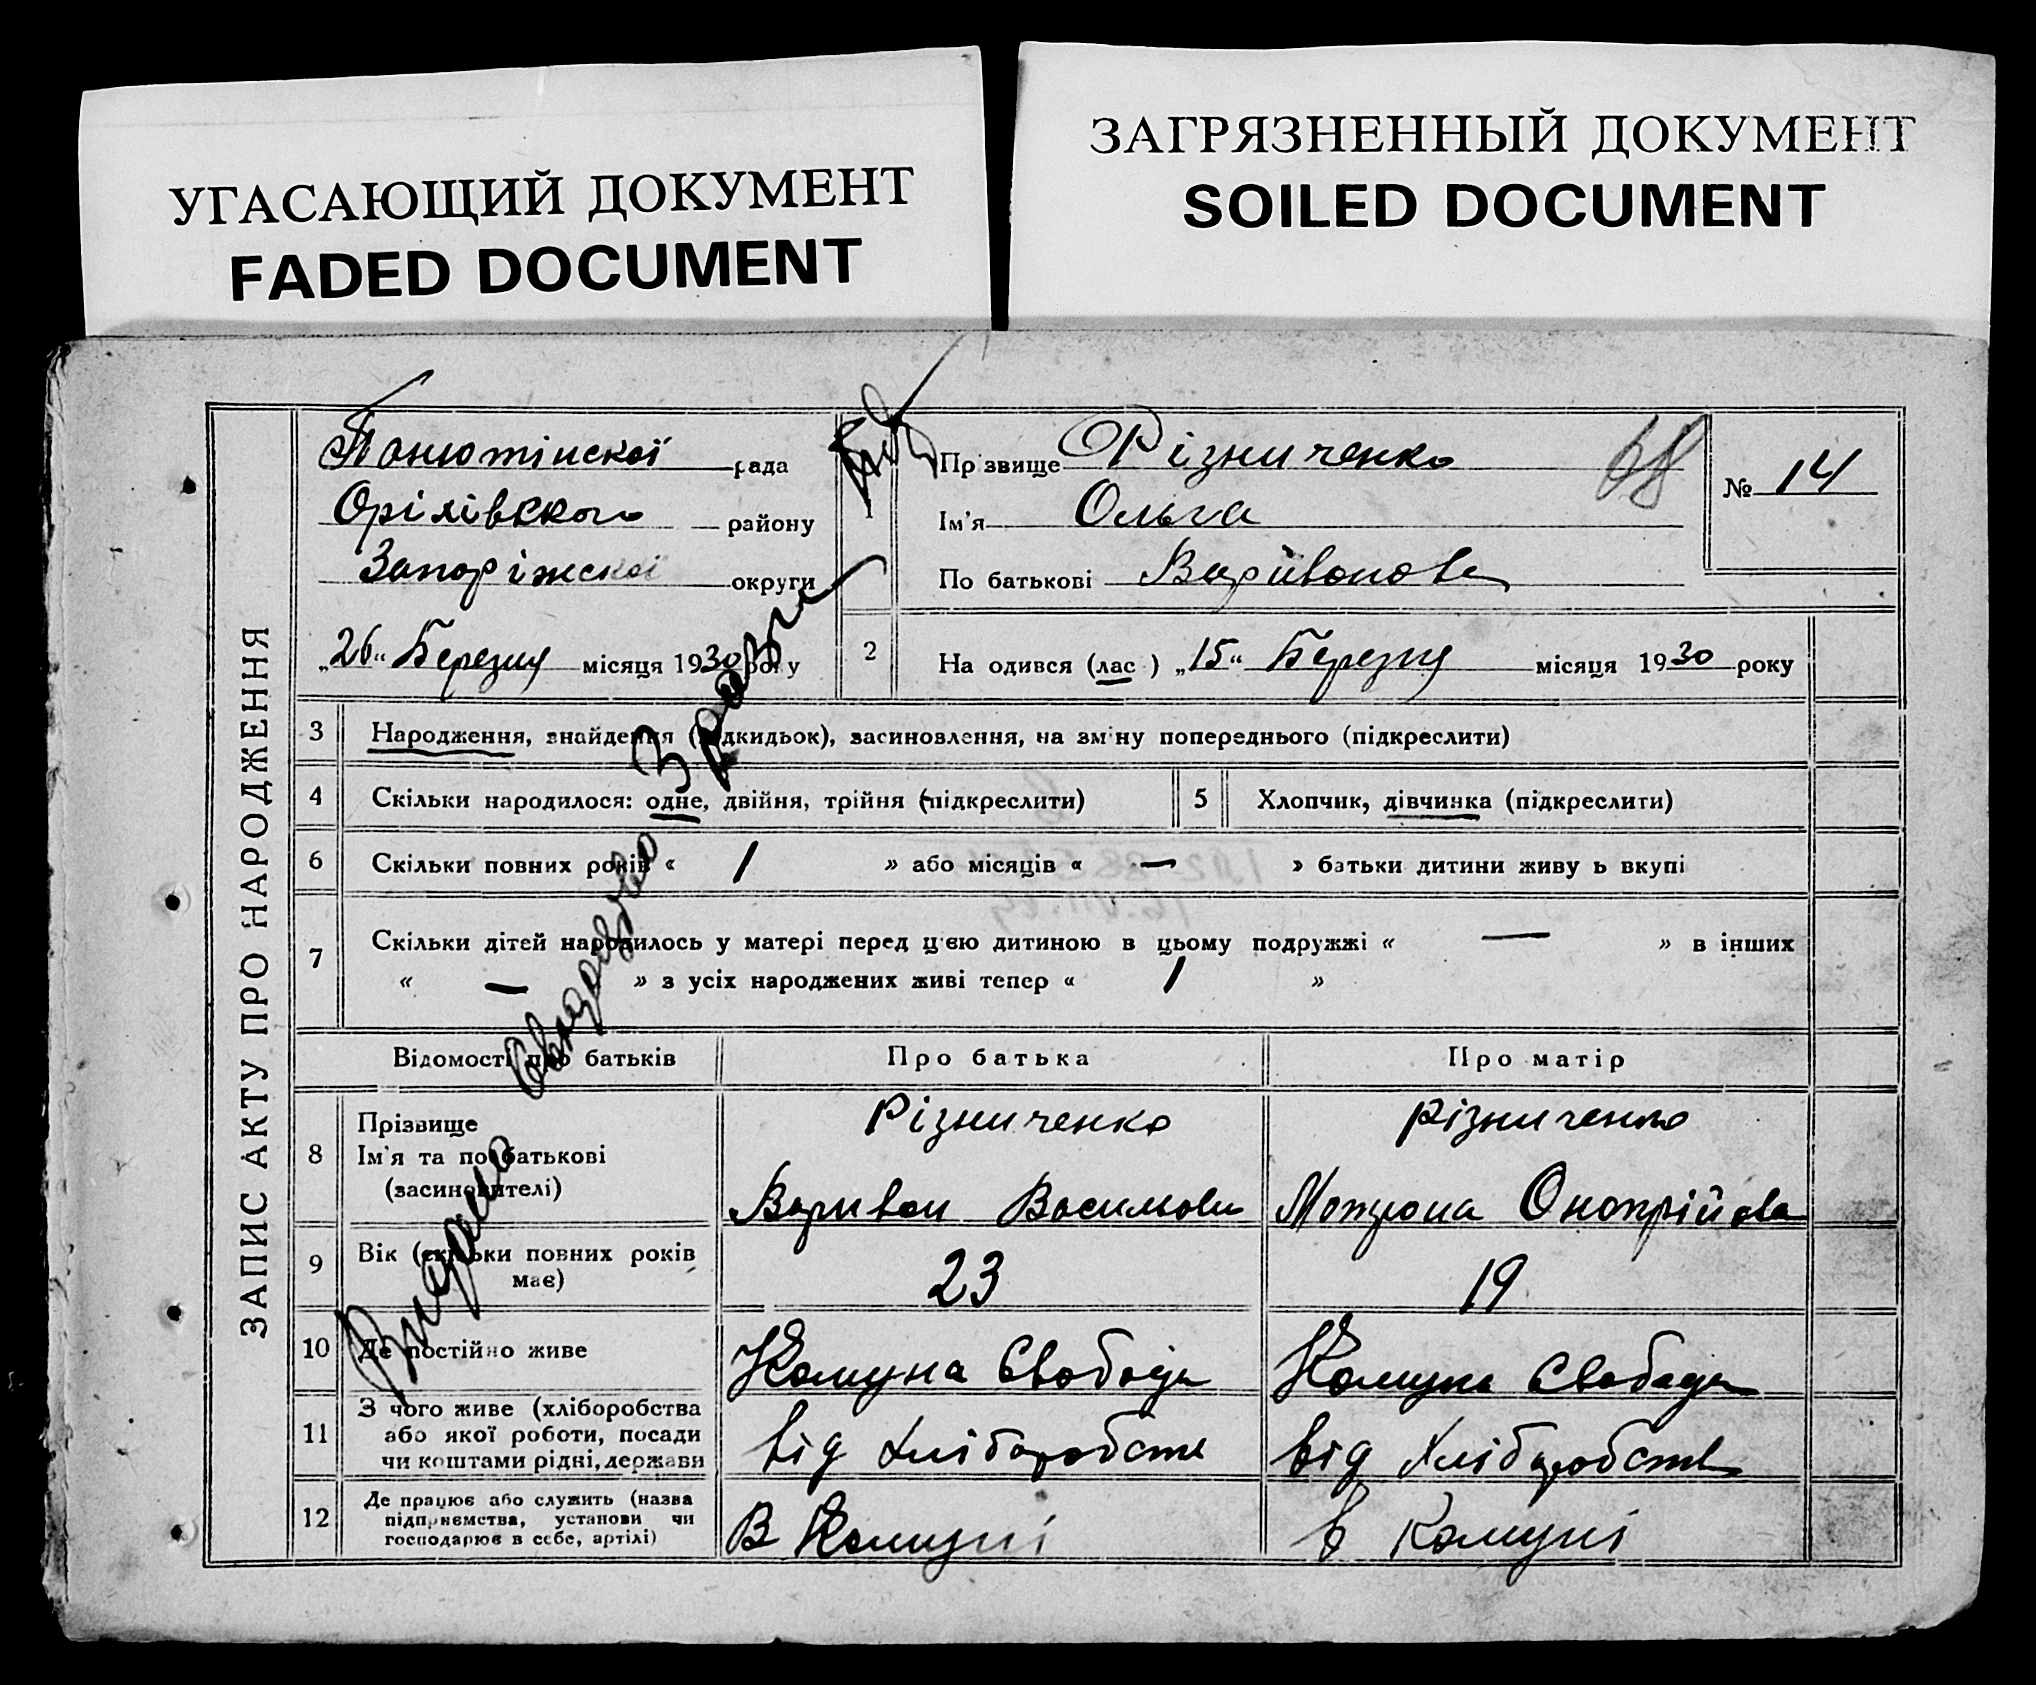 УГАСАЮЩИЙ ДОКУМЕНТ
FADED DOCUMENT
ЗАГРЯЗНЕННЫЙ ДОКУМЕНТ
SOILED DOCUMENT
ЗАПИС АКТУ ПРО НАРОДЖЕННЯ
Панютінскої рада
Орілівского району
Запоріжскої округи
„26“ Березня місяця 1930 року
1
Прізвище Різниченко
Ім'я Ольга
По батькові Варивонова
68
№ 14
2 На одився (лас ) „15“ Березня місяця 1930 року
3 Народження, знайдення (підкидьок), засиновлення, на зміну попереднього (підкреслити)
4 Скільки народилося: одне, двійня, трійня (підкреслити)
5 Хлопчик, дівчинка (підкреслити)
6 Скільки повних років « 1 » або місяців « — » батьки дитини живу ь вкупі
7 Скільки дітей народилось у матері перед цією дитиною в цьому подружжі « — » в інших
« — » з усіх народжених живі тепер « 1 »
Відомості про батьків Про батька Про матір
8 Прізвище
Ім'я та по батькові
(засиновителі)
Різниченко
Варивон Васильови
Різниченко
Мотрона Онопрійова
9 Вік (скільки повних років
має)
23
19
10 Де постійно живе
Комуна Свобода
Комуна Свобода
11 З чого живе (хліборобства
або якої роботи, посади
чи коштами рідні, держави
від Хліборобств
від Хліборобств
12 Де працює або служить (назва
підприємства, установи чи
господарює в себе, артілі)
В Комуні
в Комуні
Видано